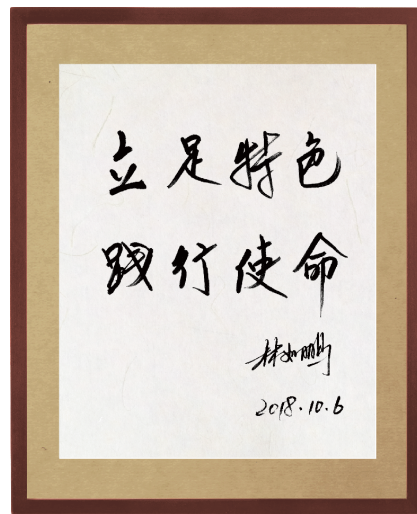 立足特色
践行使命
林如鹏
2018.10.6